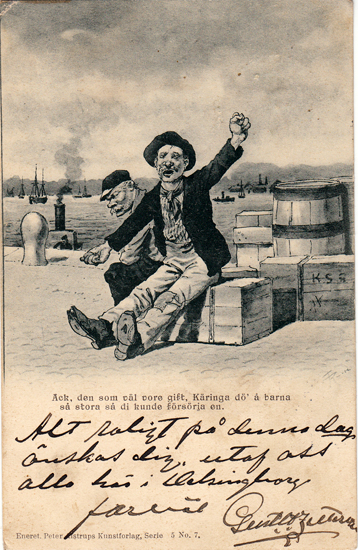 K S S
Ack, den som väl vore gift, Käringa dö' å barna
så stora så di kunde försörja en.
Alt roligt på denna dag
önskas dig, utaf oss
alla här i Helsingborg
farväl
Eneret. Peter Alstrups Kunstforlag, Serie 5 No. 7.